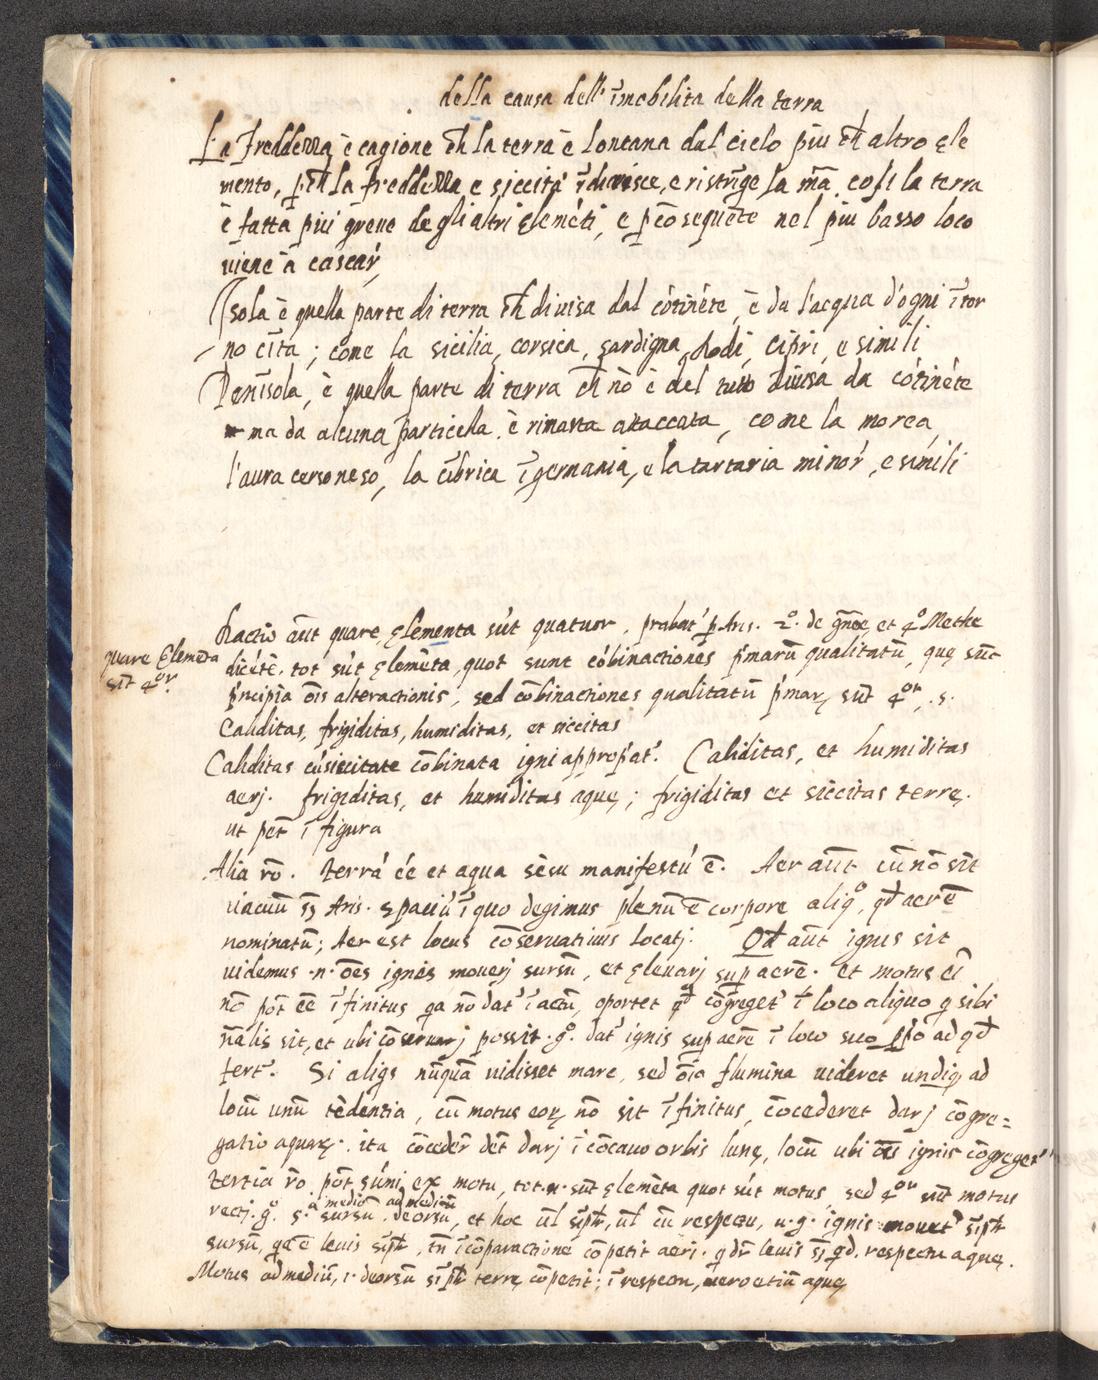 della causa dell' ĩmobilita della terra
La Freddezza è cagione ch̃ la terra è lontana dal cielo più ch̃ altro ele
mento, p̱ch̃ la freddezza e siccità ... e ristrĩge la m̃a. così la terra
è fatta più greue de gli altri elemẽti, e p̱ cõsequẽte nel più basso loco
uiene à cascar,
Isola è quella parte di terra ch̃ diuisa dal cõtinẽte, è da l'acqua d'ogni ĩtor
no cĩta; come la sicilia, corsica, sardigna, Rodi, Cipri, e simili
Penĩsola, è quella parte di terra ch̃ nõ è del tutto diuisa da cõtinẽte
ma da alcuna particella è rimasta attaccata, come la morea,
l'aura cersoneso, la cĩbrica ĩ germania, e la tartaria minor, e simili
Ratio aũt quare ęlementa sũt quatuor, probat' p̱ Aris. 2.° de g̃noe, et 4° Methe
quare Elemẽta
sĩt 4or.
dicẽte, tot sũt ęlemẽta, quot sunt cõbinationes p'marũ qualitatũ, quę sũt
p'ncipia õis alterationis, sed cõbinationes qualitatũ p'mar. sũt 4or, .s.
Caliditas, frigiditas, humiditas, et siccitas
Caliditas cũ siccitate cõbinata igni appropat'. Caliditas, et humiditas
aerj. frigiditas, et humiditas aquę; frigiditas et siccitas terrę.
ut pet̃ ĩ figura
Alia rõ. terrã ẽe et aqua sẽsu manifestũ ẽ. Aer aũt cũ nõ sit
uacuũ s̃s Aris. spaciũ ĩ quo degimus plenũ ẽ corpore aliqo, qd̃ aerẽ
nominatũ; Aer est locus cõseruatiuus locatj. Qd̃ aũt ignis sit
uidemus .n. ões ignes mouerj sursũ, et ęleuarj sup aerẽ. et motus cũ
nõ põt ẽe ĩfinitus, qa nõ dat' ĩ actũ, oportet qd̃ cõgreget' ĩ loco aliquo q̱ sibi
ñalis sit, et ubi cõseruarj possit. g°. dat' ignis sup aerẽ ĩ loco suo p̱p̃o ad qd̃
fert'. Si aliqs nũquã uidisset mare, sed õia flumina uideret undiq̱ ad
locũ unũ tẽdentia, cũ motus eor. nõ sit ĩfinitus, cõcederet darj cõgre=
gatio aquar. ita cõceder det̃ darj ĩ cõcauo orbis lunę, locũ ubi õis ignis cõgreget'
tertia rõ põt sũmi ex motu, tot .n. sũt ęlemẽta quot sũt motus, sed 4or sũt motus
a mediũ ad mediũ
rectj. g°. s. sursũ deorsũ, et hoc ũl sĩplr, ũl cũ respectu, u.g. ignis mouet' sĩplr
sursũ, qa ẽ leuis sĩplr, tñ ĩ cõparatione cõpetit aeri. ... leuis ... respectu aquę.
Motus ad mediũ, i. deorsũ sĩplr terrę cõpetit; ĩ respectu, uero etiã aquę